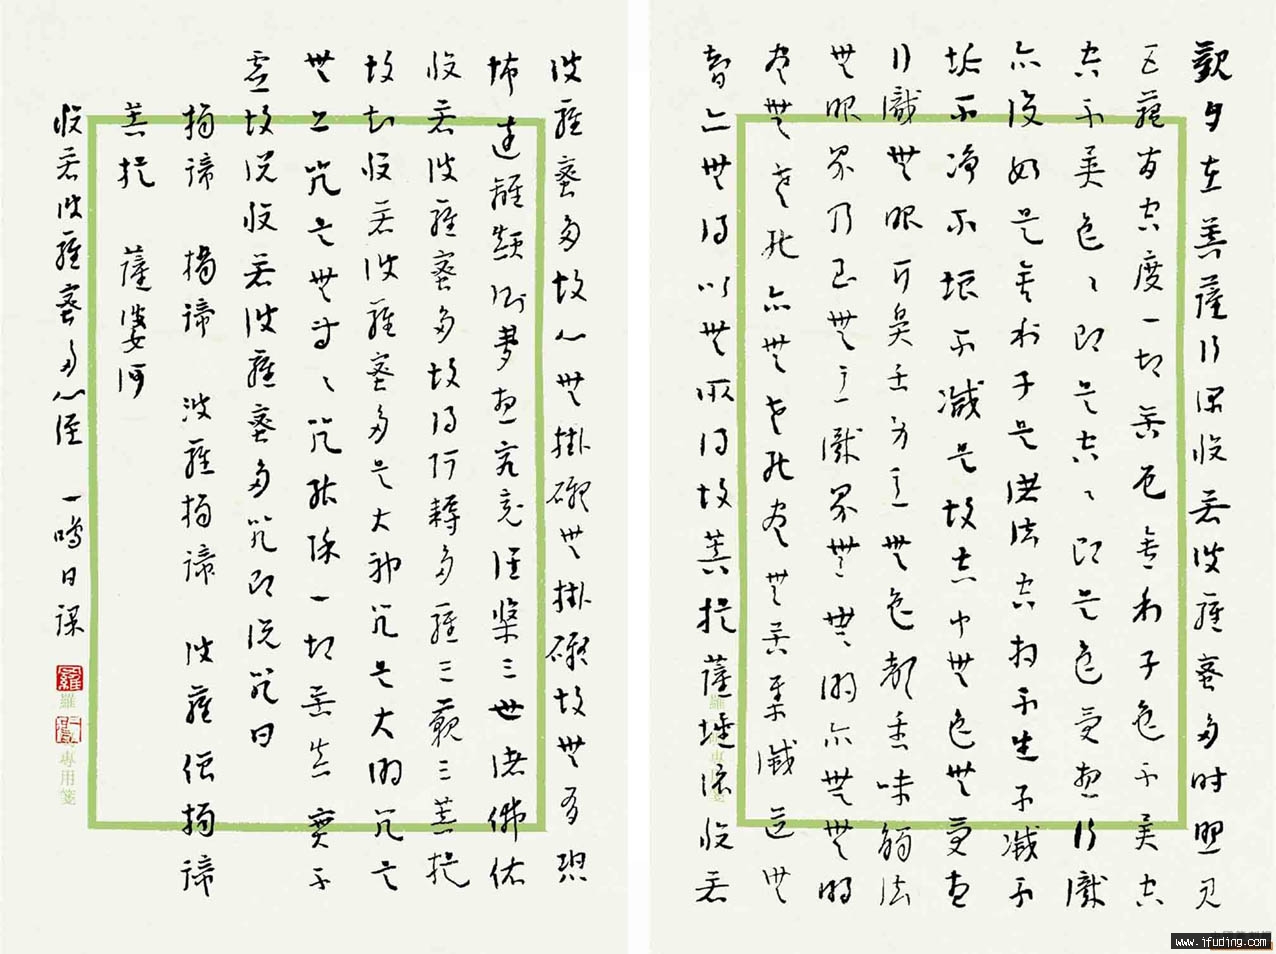 觀自在菩薩行深般若波羅蜜多時照見
五蘊皆空度一切苦厄舍利子色不異空
空不異色〻即是空〻即是色受想行識
亦復如是舍利子是諸法空相不生不滅不
垢不淨不增不減是故空中無色無受想
行識無眼耳鼻舌身意無色聲香味觸法
無眼界乃至無意識界無無明亦無無明
盡無老死亦無老死盡無苦集滅道無
智亦無得以無所得故菩提薩埵依般若
波羅蜜多故心無掛礙無掛礙故無有恐
怖遠離顛倒夢想究竟涅槃三世諸佛依
般若波羅蜜多故得阿耨多羅三藐三菩提
故知般若波羅蜜多是大神咒是大明咒是
無上咒是無等〻咒能除一切苦真實不
虛故說般若波羅蜜多咒即說咒曰
揭諦 揭諦 波羅揭諦 波羅僧揭諦
菩提 薩婆訶
般若波羅蜜多心經 一鳴日課
羅 專用箋
www.ifuding.com